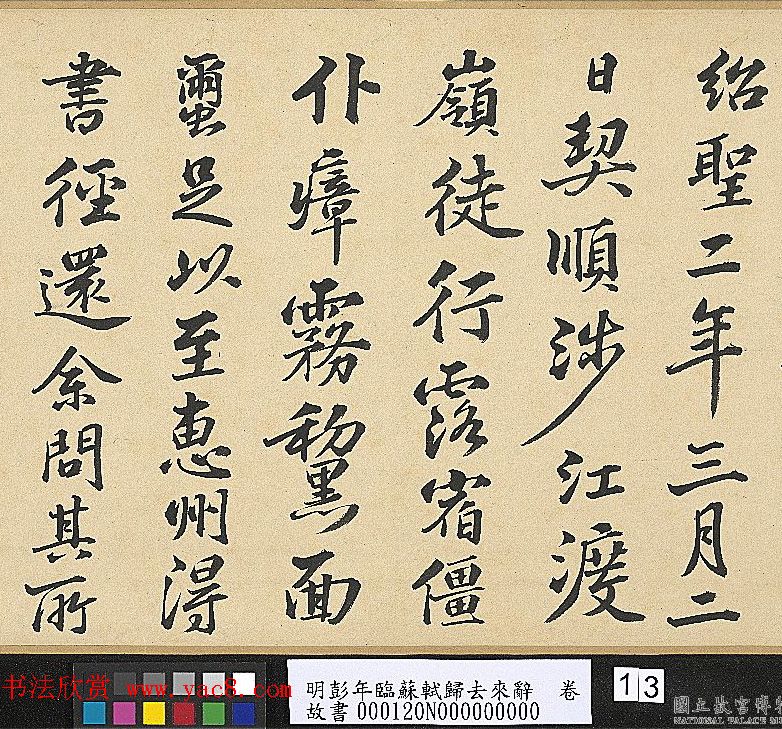 紹聖二年三月二
日契順涉江渡
嶺徒行露宿僵
仆瘴霧黧面
蠒足以至惠州得
書徑還余問其所
书法欣赏 www.yac8.com
明彭年臨蘇軾歸去來辭 卷
故書000120N000000000
13
國立故宮博物
NATIONAL PALACE MU